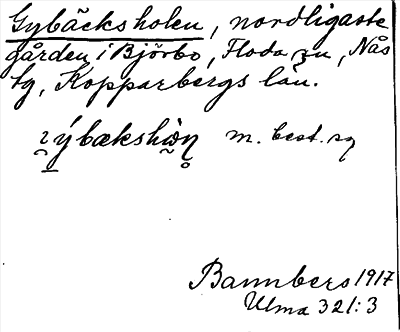 Gybäcksholen, nordligaste
gården i Björbo, Floda sn, Nås
tg, Kopparbergs län.
m. best. sg
Bannbers 1917
Ulma 321:3